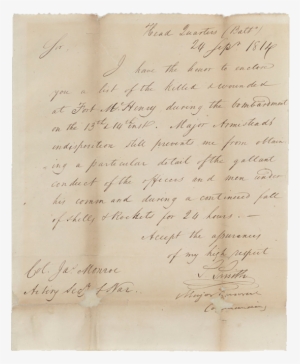 Head Quarters (Balto)
24 Sepr 1814
Sir
I have the honor to enclose
you a list of the killed & wounded
at Fort McHenry during the bombardment
on the 13th & 14th Inst. Major Armistead's
indisposition still prevents me from obtain
ing a particular detail of the gallant
conduct of the officers and men under
his command during a continued fall
of shells & Rockets for 24 hours. —
Accept the assurances
of my high respect
S. Smith
Major General
Commanding
Col. Jas Monroe
Acting Secy of War